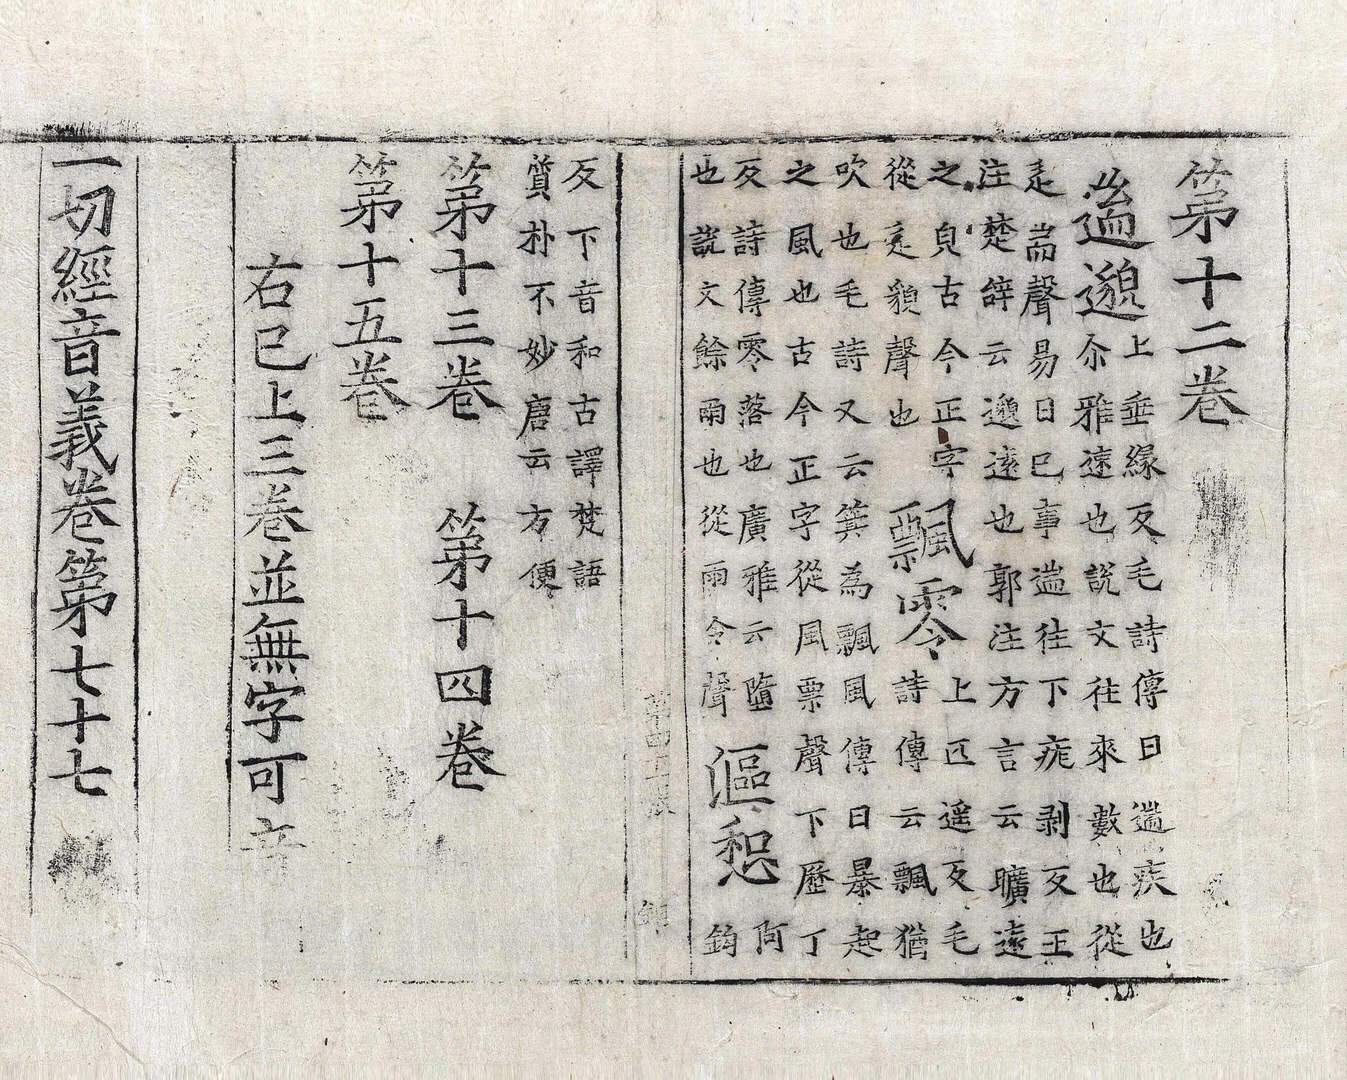 第十二卷
遄邈上垂緣反毛詩傳曰遄疾也
尒雅速也說文往來數也從
辵耑聲易曰巳事遄往下㾕剥反王
注楚辭云邈遠也郭注方言云曠遠
之皃古今正字
從辵䫉聲也
飄零上匹遥反毛
詩傳云飄猶
吹也毛詩又云箕為飄風傳曰暴起
之風也古今正字從風票聲下歷丁
反詩傳零落也廣雅云墮
也說文餘雨也從雨令聲
漚惒阿
鈎
反下音和古譯楚語
質朴不妙唐云方便
第十三卷　第十四卷
第十五卷
右巳上三卷並無字可音
一切經音義卷第七十七